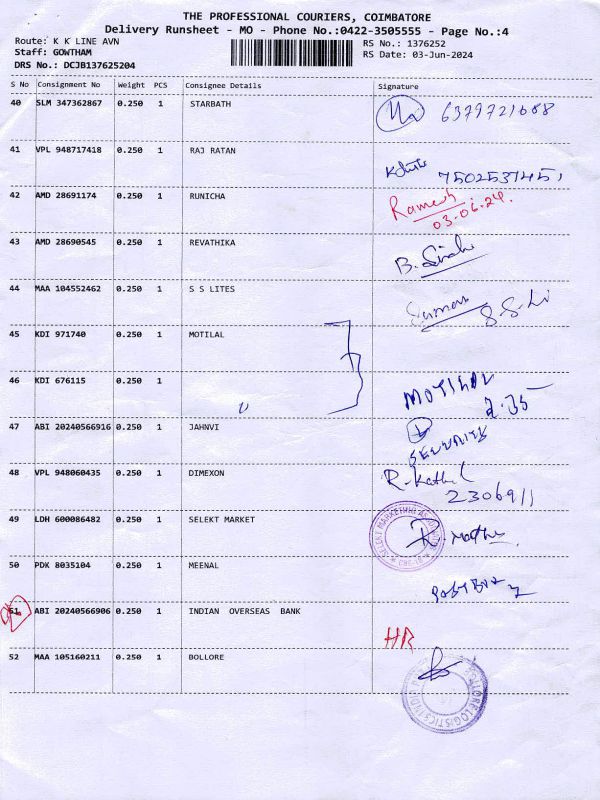 THE PROFESSIONAL COURIERS, COIMBATORE
Delivery Runsheet - MO - Phone No.:0422-3505555 - Page No.:4
Route: K K LINE AVN
RS No.: 1376252
Staff: GOWTHAM
RS Date: 03-Jun-2024
DRS No.: DCJB137625204
S No Consignment No Weight PCS Consignee Details Signature
40 SLM 347362867 0.250 1 STARBATH 6379721688
41 VPL 948717418 0.250 1 RAJ RATAN 7502537451
42 AMD 28691174 0.250 1 RUNICHA Ramesh
03.06.24.
43 AMD 28690545 0.250 1 REVATHIKA B.
44 MAA 104552462 0.250 1 S S LITES Suman
45 KDI 971740 0.250 1 MOTILAL
46 KDI 676115 0.250 1 MOTILAL
2.35
47 ABI 20240566916 0.250 1 JAHNVI
SECURITY
48 VPL 948060435 0.250 1 DIMEXON R.
2306911
49 LDH 600086482 0.250 1 SELEKT MARKET
CBE-18
50 PDK 8035104 0.250 1 MEENAL
POST BOX
51 ABI 20240566906 0.250 1 INDIAN OVERSEAS BANK
HR
52 MAA 105160211 0.250 1 BOLLORE